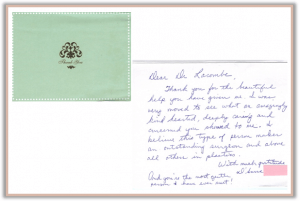 Thank You
Dear Dr. Lacombe,
Thank you for the beautiful
help you have given me I was
very moved to see what an amazingly
kind hearted, deeply caring and
concerned you showed to me. I
believe this type of person makes
an outstanding surgeon and above
all others in plastics.
With much gratitude
And you is the most gentle
person I have ever met!